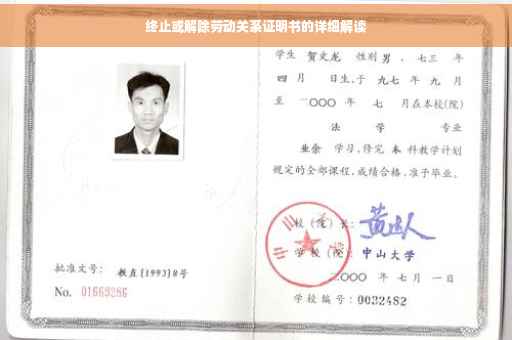 终止或解除劳动关系证明书的详细解读
学生 贺文龙 性别 男 、七三 年
四 月 日生,于 九七 年 九 月
至 二〇〇〇 年 七 月在本校(院)
法 学 专业
业余 学习,修完 本 科教学计划
规定的全部课程,成绩合格,准予毕业。
校(院)长:
学校(院): 中山大学
二〇〇〇 年 七 月 一 日
学校编号:0032482
批准文号: 教直[1993]8号
No. 01669286